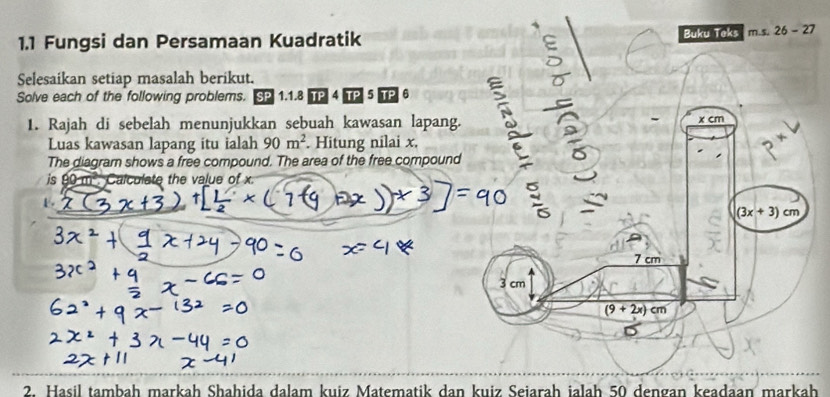 1.1 Fungsi dan Persamaan Kuadratik
Buku Teks m.s. 26 – 27
Selesaikan setiap masalah berikut.
Solve each of the following problems. SP 1.1.8 TP 4 TP 5 TP 6
1. Rajah di sebelah menunjukkan sebuah kawasan lapang.
Luas kawasan lapang itu ialah 90 m². Hitung nilai x.
The diagram shows a free compound. The area of the free compound
is 90 m². Calculate the value of x.
x(3x+3) + [½ × (7+(9+2x)) × 3] = 90
3x² + 9/2 x + 24 - 90 = 0
x = 4
3x² + 9/2 x - 66 = 0
6x² + 9x - 132 = 0
2x² + 3x - 44 = 0
2x + 11 x - 4
area trapezium
½ (a+b)h
x cm
(3x + 3) cm
7 cm
3 cm
(9 + 2x) cm
a
b
2. Hasil tambah markah Shahida dalam kuiz Matematik dan kuiz Sejarah ialah 50 dengan keadaan markah